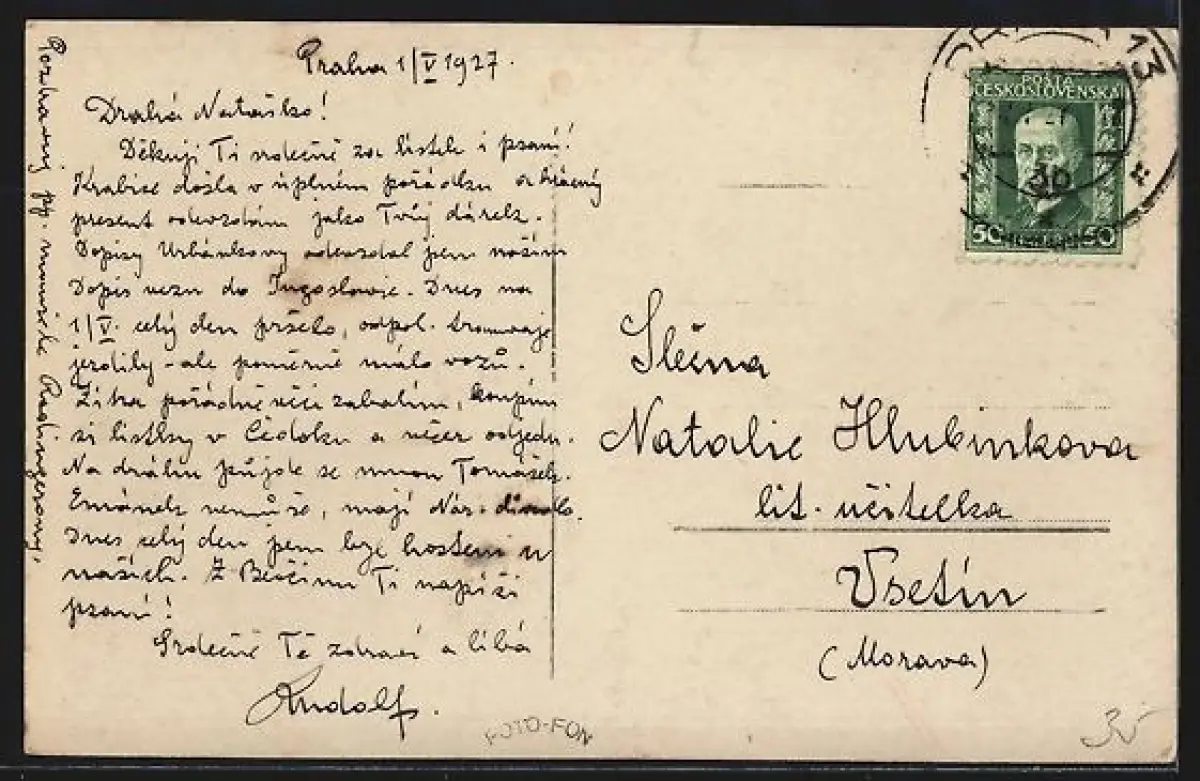 Praha 1/V 1927.
Drahá Nataško!
Děkuji Ti srdečně za lístek i psaní!
Krabice došla v úplném pořádku a krásný
present odevzdám jako Tvůj dárek.
Dopisy Urbánkovy odevzdal jsem našim
Dopis vezu do Jugoslavie. Dnes na
1/V. celý den pršelo, odpol. tramvaje
jezdily - ale poměrně málo vozů.
Zítra pořádně věci zabalím, koupím
si lístky v Čedoku a večer odjedu.
Na dráhu půjde se mnou Tomášek.
Emánek nemůže, mají Nár. divadlo.
Dnes celý den jsem byl hostem u
našich. Z Ti napíši
psaní!
Srdečně Tě zdraví a líbá
Rudolf.
Pozdravuj pp.
FOTO-FON
POŠTA
ČESKOSLOVENSKÁ
50 50
13
Slečna
Natalie Hlubinkova
lit. učitelka
Vsetín
(Morava)